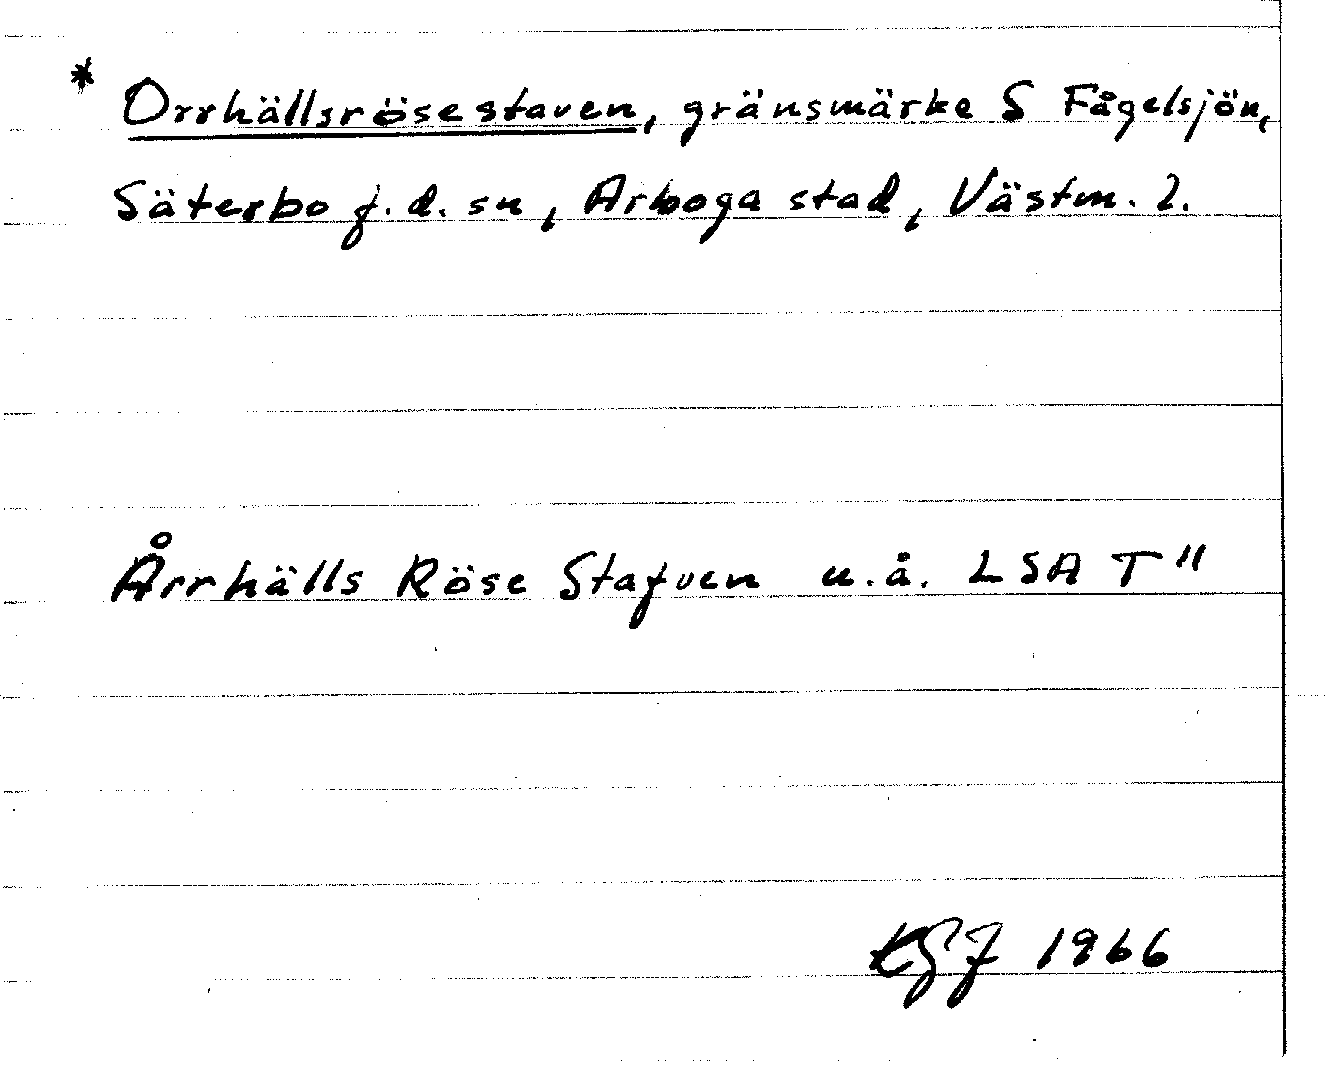 * Orrhällsrösestaven, gränsmärke S Fågelsjön,
Säterbo f.d. sn, Arboga stad, Västm. l.
Årrhälls Röse Stafven u.å. LSA T"
1966